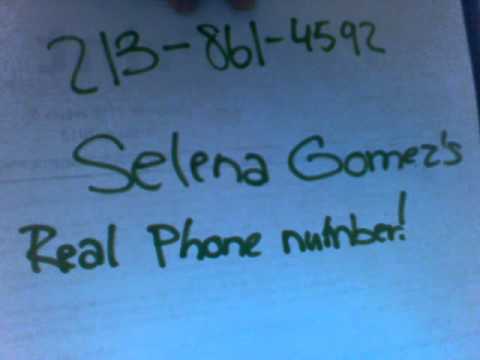 213-861-4592
Selena Gomez's
Real Phone number!